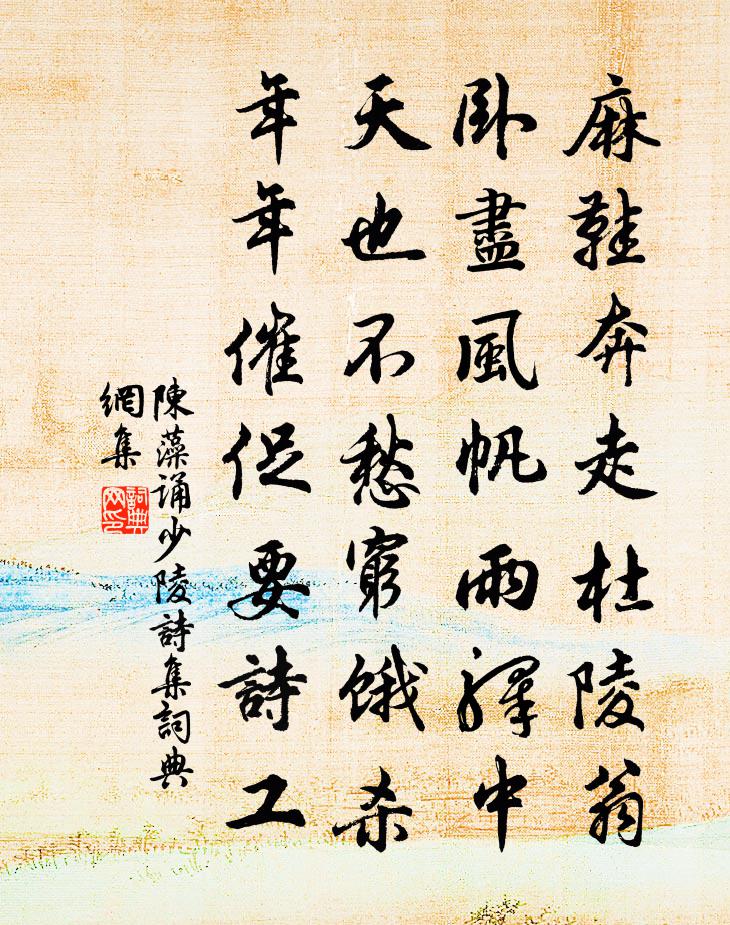 麻鞋奔走杜陵翁
卧盡風帆雨驛中
天也不愁窮餓殺
年年催促要詩工
陳藻誦少陵詩集詞典
網集
詞典網印